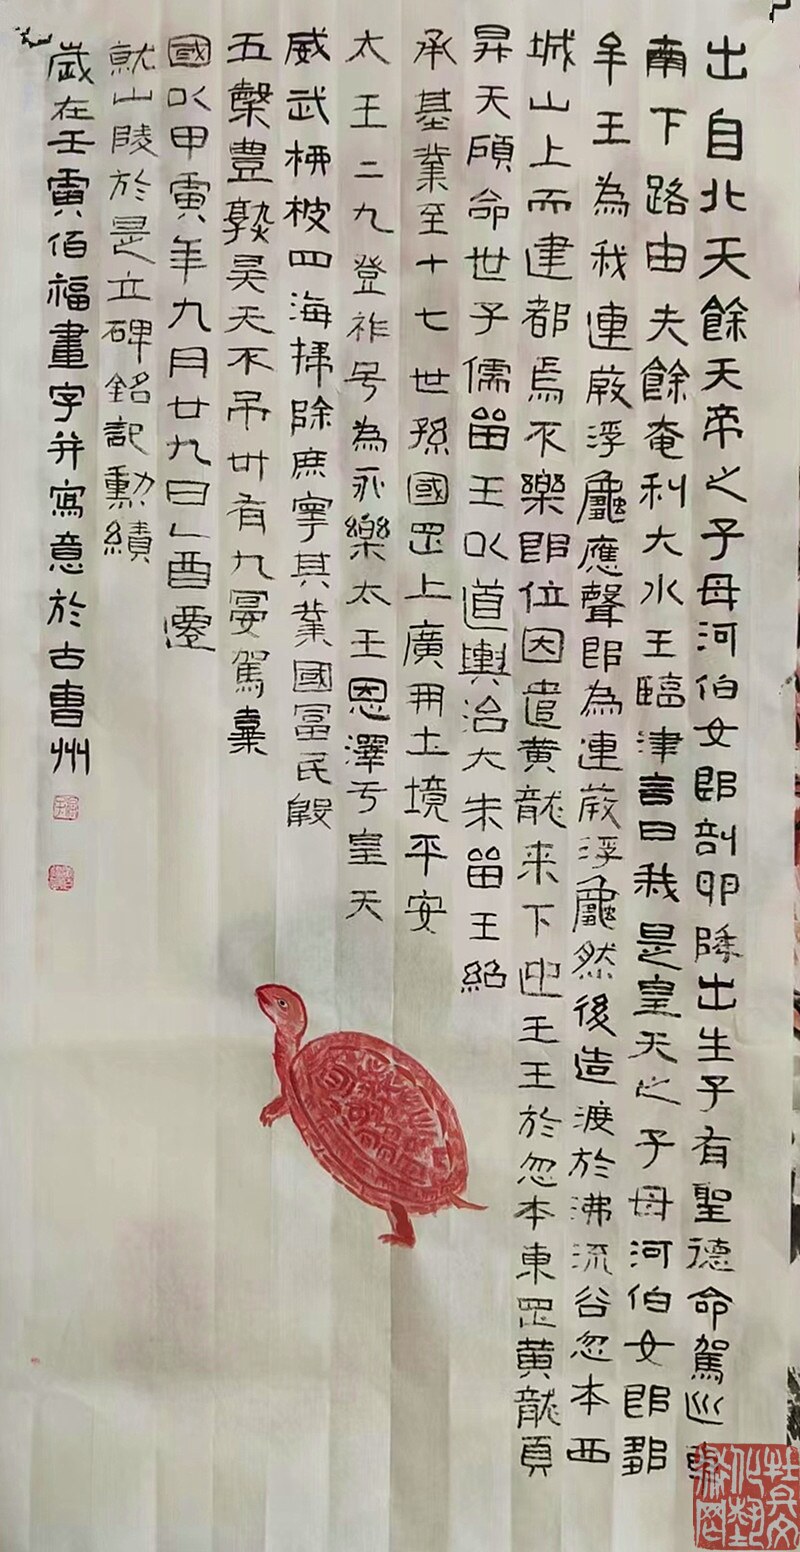 出自北天餘天帝之子母河伯女郎剖卵降出生子有聖德命駕巡車
南下路由夫餘奄利大水王臨津言曰我是皇天之子母河伯女郎鄒
牟王為我連葭浮龜應聲即為連葭浮龜然後造渡於沸流谷忽本西
城山上而建都焉不樂即位因遣黄龍来下迎王王於忽本東罡黄龍頁
昇天顧命世子儒留王以道輿治大朱留王紹
承基業至十七世孫國罡上廣開土境平安
太王二九登祚号為永樂太王恩澤于皇天
威武柳被四海掃除庶寧其業國冨民殷
五穀豊熟昊天不吊卅有九宴駕棄
國以甲寅年九月廿九日乙酉遷
就山陵於是立碑銘記勳績
歲在壬寅伯福畫字并寫意於古曹州